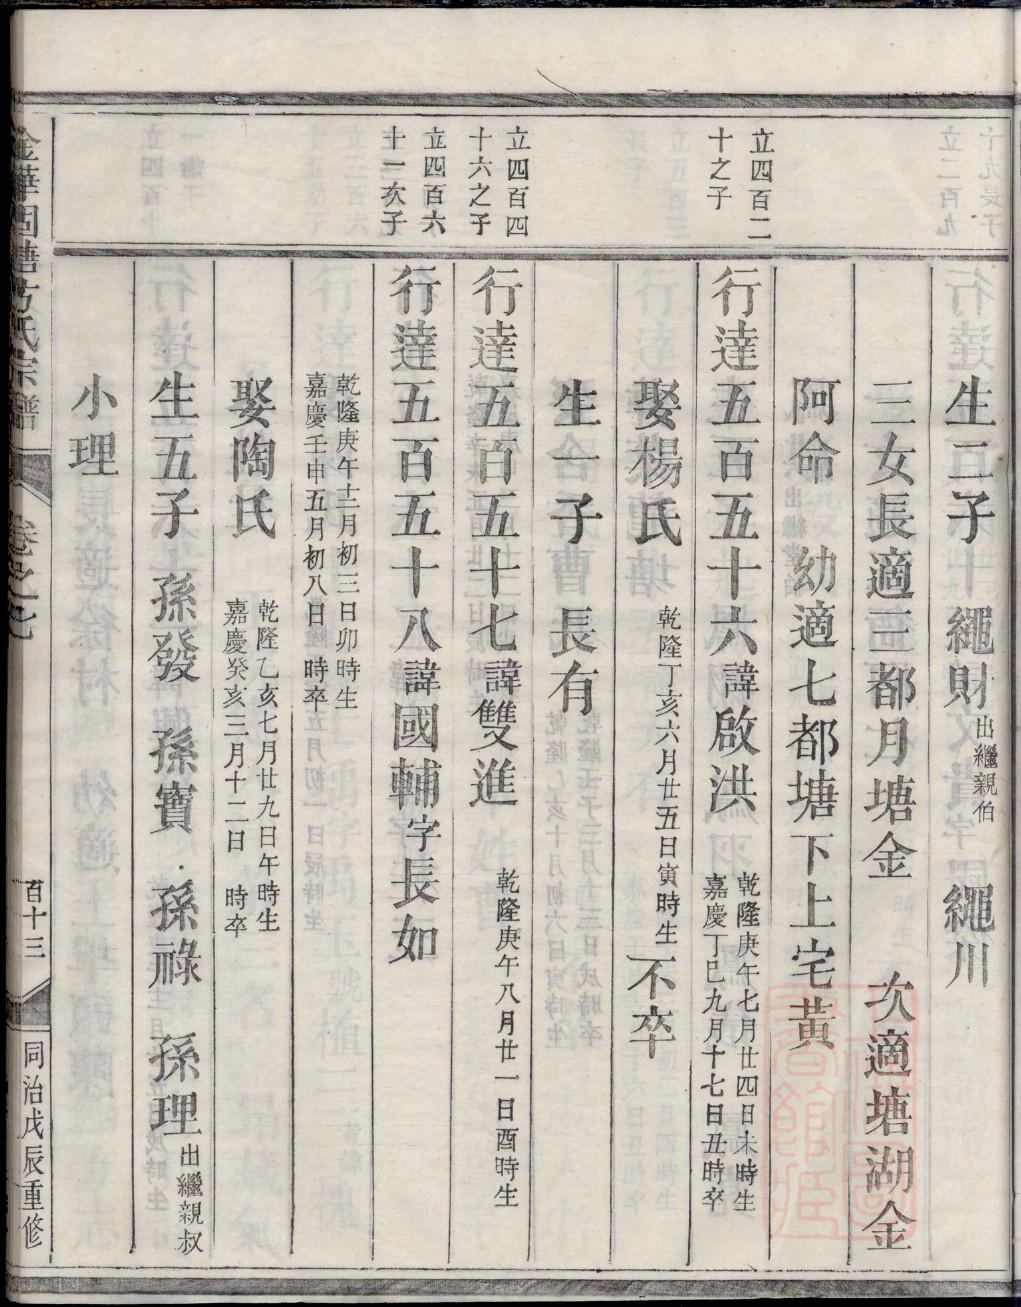 生二子 繩財出繼親伯 繩川
三女長適三都月塘金 次適塘湖金
阿命 幼適七都塘下上宅黃
立四百二
十之子
行達五百五十六諱啟洪
乾隆庚午七月廿四日未時生
嘉慶丁巳九月十七日丑時卒
娶楊氏乾隆丁亥六月廿五日寅時生不卒
生一子 長有
立四百四
十六之子
行達五百五十七諱雙進
乾隆庚午八月廿一日酉時生
立四百六
十一次子
行達五百五十八諱國輔字長如
乾隆庚午十二月初三日卯時生
嘉慶壬申五月初八日 時卒
娶陶氏
乾隆乙亥七月廿九日午時生
嘉慶癸亥三月十二日 時卒
生五子 孫發 孫寶 孫祿 孫理出繼親叔
小理
方氏宗譜
卷之七
百十三
同治戊辰重修